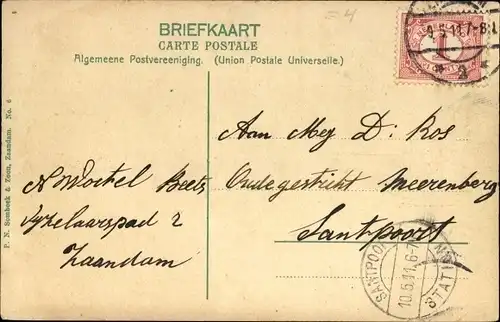 =4
BRIEFKAART
CARTE POSTALE
Algemeene Postvereeniging. (Union Postale Universelle.)
9.5.11.7-8
1
2
Aan Mej D: Ros
Oude gesticht Meerenberg
Santpoort
N Wockel Beets
laarspad 2
Zaandam
SANTPOORT
10.5.11.6-7
STATI
P. N. Sombeek & Zoon, Zaandam. No. 6